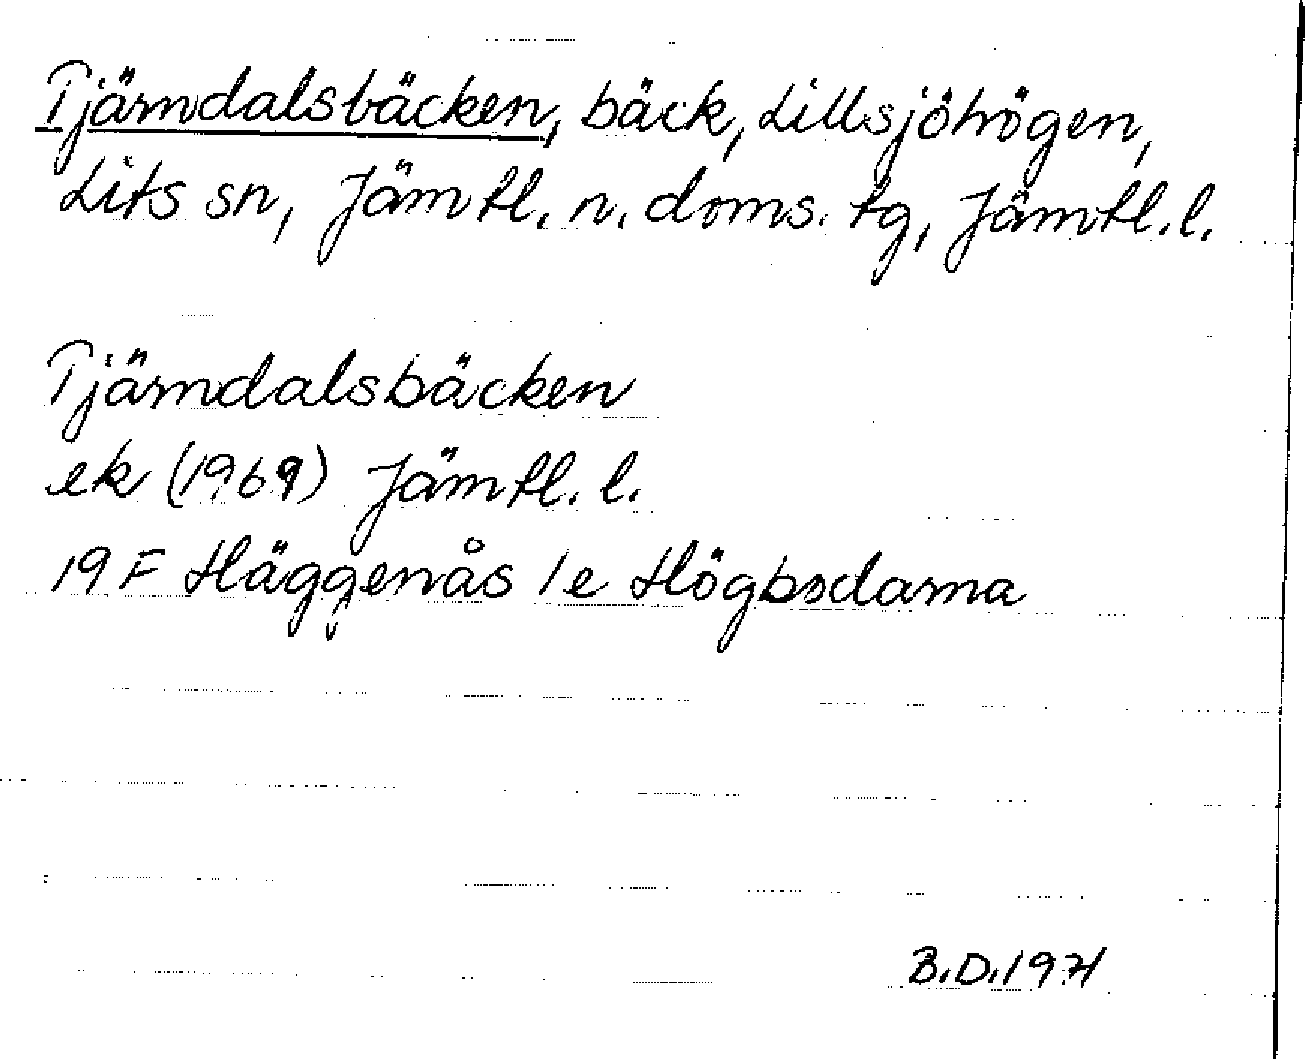 Tjärndalsbäcken, bäck, Lillsjöhögen,
Lits sn, Jämtl. n. doms. tg, Jämtl. l.
Tjärndalsbäcken
ek (1969) Jämtl. l.
19 F Häggenås 1e Högbodarna
B.D. 1971